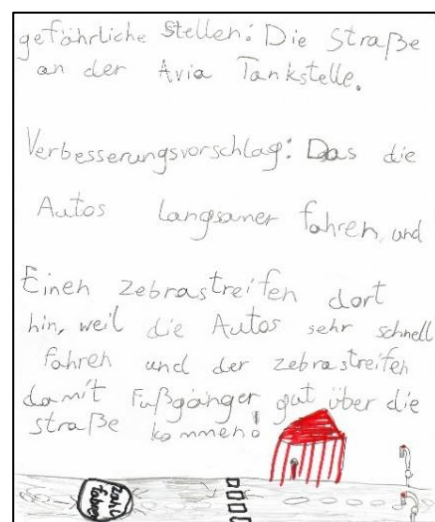 gefährliche Stellen: Die Straße
an der Avia Tankstelle.
Verbesserungsvorschlag: Das die
Autos langsamer fahren, und
Einen zebrastreifen dort
hin, weil die Autos sehr schnell
fahren und der zebrastreifen
damit Fußgänger gut über die
straße kommen!